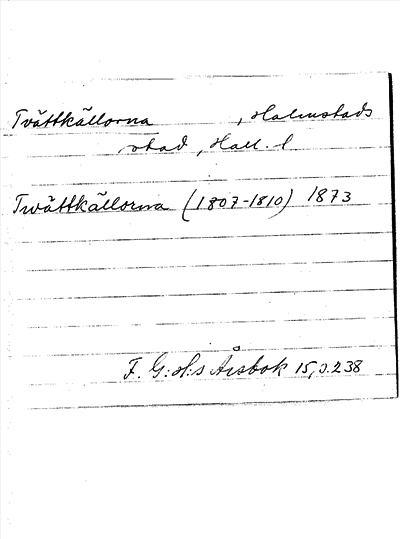 Tvättkällorna , Halmstads
stad, Hall. l.
Twättkällorna (1807-1810) 1873
F. G:dls Årsbok 15, s. 238